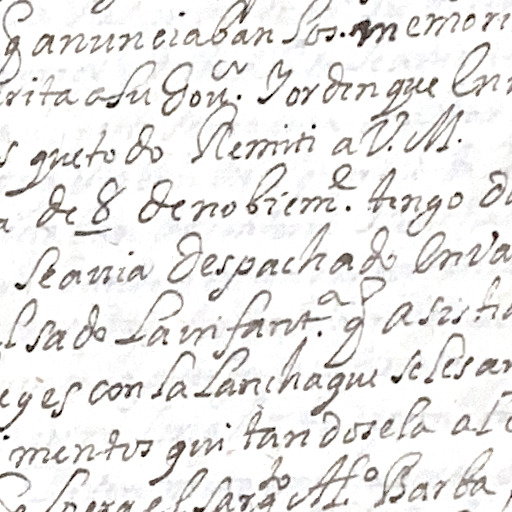 q anunciaban los. memori
rita a su Gour. Y orden que En
s que todo Remiti a V. M.
a de 8 de nobiem.e tengo d
se avia Despachado En va
l sado La infant.a q asistia
eyes con la Lancha que se les a
imentos quitandosela al
Espera el sarg.to Al.o Barba